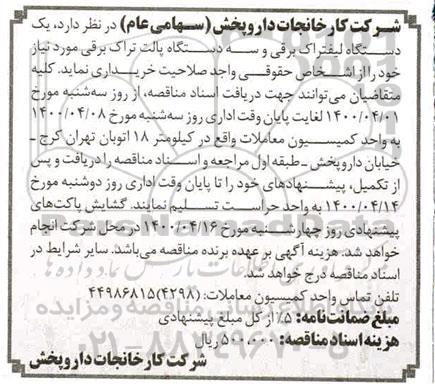 شرکت کارخانجات داروپخش (سهامی عام) در نظر دارد، یک
دستگاه لیفتراک برقی و سه دستگاه پالت تراک برقی مورد نیاز
خود را از اشخاص حقوقی واجد صلاحیت خریداری نماید. کلیه
متقاضیان می‌توانند جهت دریافت اسناد مناقصه، از روز سه‌شنبه مورخ
۱۴۰۰/۰۴/۰۱ لغایت پایان وقت اداری روز سه‌شنبه مورخ ۱۴۰۰/۰۴/۰۸
به واحد کمیسیون معاملات واقع در کیلومتر ۱۸ اتوبان تهران کرج ـ
خیابان داروپخش ـ طبقه اول مراجعه و اسناد مناقصه را دریافت و پس
از تکمیل، پیشنهادهای خود را تا پایان وقت اداری روز دوشنبه مورخ
۱۴۰۰/۰۴/۱۴ به واحد حراست تسلیم نمایند. گشایش پاکت‌های
پیشنهادی روز چهارشنبه مورخ ۱۴۰۰/۰۴/۱۶ در محل شرکت انجام
خواهد شد. هزینه آگهی بر عهده برنده مناقصه می‌باشد. سایر شرایط در
اسناد مناقصه درج خواهد شد.
تلفن تماس واحد کمیسیون معاملات: (۴۲۹۸)۴۴۹۸۶۸۱۵
مبلغ ضمانت‌نامه: ۵٪ از کل مبلغ پیشنهادی
هزینه اسناد مناقصه: ۵۰۰,۰۰۰ ریال
شرکت کارخانجات داروپخش